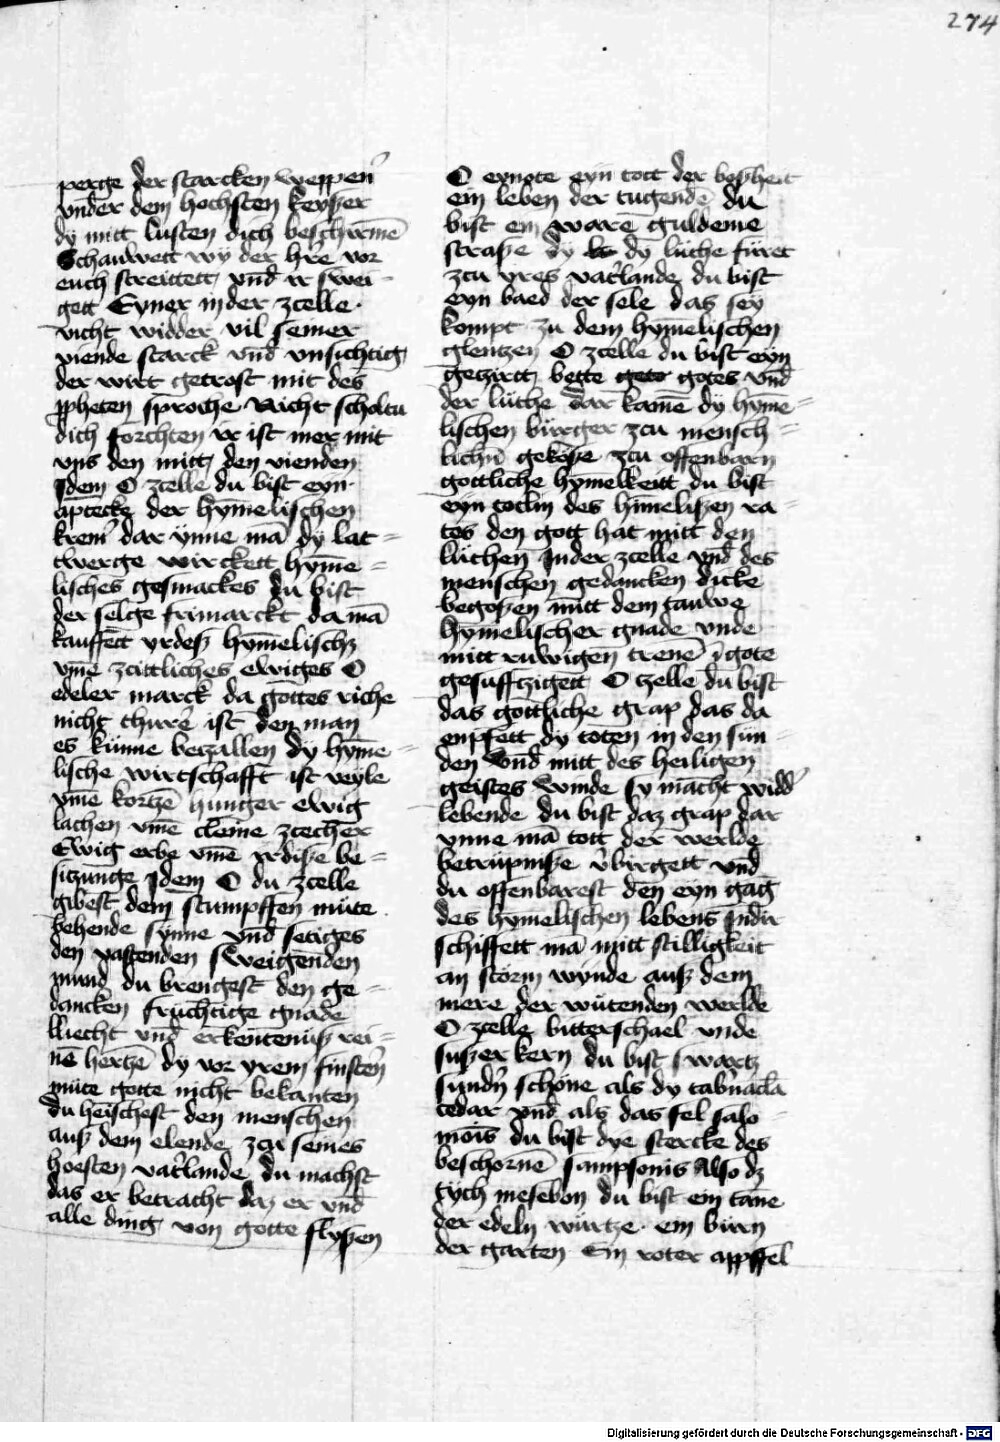 274
perge der starcken weppen̄
vnder dem hochsten keyszer
dy mitt lusten dich beschirmē
Schauwett wy der hr̄e vor
euch streittett vnd̄ ir swei-
gett Eyner in der zcelle
nicht widder vil seiner
viende starck vnd̄ vnsichtig
der wirt getrost mit des
ꝓpheten sproche Nicht schaltu
dich forchten ir ist mer mit
vns den mitt den vienden
Idem O zcelle du bist eyn
aptecke der hȳmelischen
krem̄ dar ynne mā dy lat=
twerge wirckett hȳme=
lisches gesmackes du bist
der selge frimarckt da mā
kauffett yrdesz hȳmelischz
vmē zcittliches ewiges O
edeler marck da gottes riche
nicht thurē ist den man
es kunne beczallen dy hȳme=
lische wirtschafft ist veyle
vmē kortzē hunger ewig
lachen vmē cleine zcecher
Ewig erbe vmē irdisze be=
sitzunge Idem O du zcelle
gibest dem stumpffen mute
behende synne vnd̄ setiges
den vastenden sweigenden
mund du brengest den ge=
dancken fruchtige gnade
liecht vnd̄ erkentenusz rei=
nē hertzē dy vor yrem finstern̄
mute gotte nicht bekanten
du heischest den menschen
ausz dem elende zcu seines
hoesten vat̄lande du machst
das er betracht daz er vnd̄
alle ding von gotte flyszen
O eynote eyn tott der boszheit
ein leben der tugendē du
bist ein warē guldeine
strasze dy dy luthe füret
zcu yres vat̄lande du bist
eyn baed der sele das sey
kompt zu dem hȳmelischen
glentzen O zcelle du bist eyn
gezcirtt bette gotes vnd̄
der luthe dar kamē dy hȳme=
lischen burger zcu mensch=
lichn̄ gekosze zcu offenbarn
gottliche hymelkeitt du bist
eyn toclin des himeliszen ra=
tes den gott hat mitt den
luthen Inder zcelle vnd̄ des
menschen gedancken dicke
begoszen mitt dem tauwe
hȳmelischer gnade vnde
mitt ruwigen trenē ī gote
gesufftzigett O tzelle du bist
das gottliche grap das da
enpfett dy toten in den sun=
den vnd mitt des heiligen
geistes winde sy macht widd̄
lebende du bist daz grap dar
ynne mā tott der werlde
betrupnisze v̄birgett vnd̄
du offenbarest den eyn gāg
des hȳmelischen lebens Indir
schiffett mā mitt stilligkeit
an storm wynde ausz dem
mere der wutenden werlde
O zcelle bitterschael vnde
suszer kern du bist swartz
sundn̄ schone als dy tabnacl̄a
cedar vnd̄ als das fel salo=
mois du bist dye stercke des
beschornē sampsonis Also dz
tych mesebon du bist ein tane
der edeln wurtze ein birn
der garten Ein roter appffel
Digitalisierung gefördert durch die Deutsche Forschungsgemeinschaft - DFG